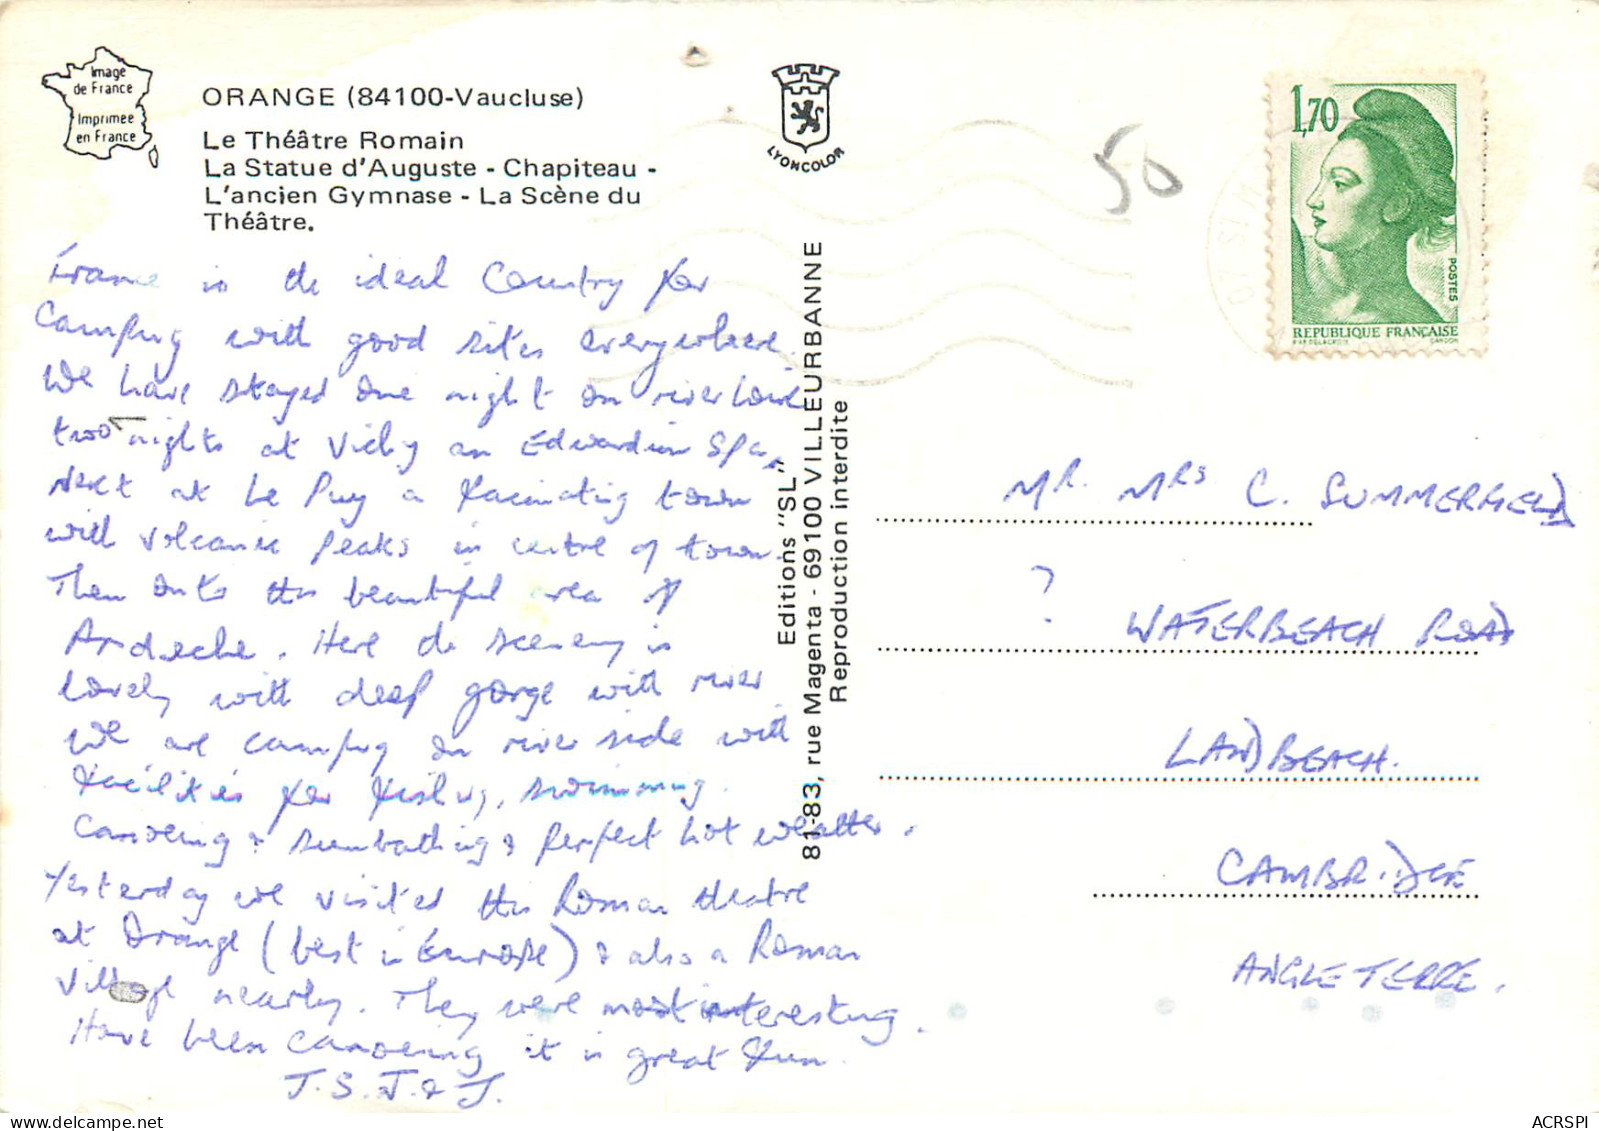 Image
de France
Imprimée
en France
ORANGE (84100-Vaucluse)
Le Théâtre Romain
La Statue d'Auguste - Chapiteau -
L'ancien Gymnase - La Scène du
Théâtre.
LYONCOLOR
50
1,70
POSTES
REPUBLIQUE FRANÇAISE
France is the ideal Country for
Camping with good sites everywhere.
We have stayed one night on river Loire
two nights at Vichy an Edwardian Spa,
Next at Le Puy a facinating town
with volcanic peaks in centre of town.
Then onto this beautiful area of
Ardeche. Here the scenery is
lovely with deep gorge with river
We are camping on river side with
facilities for fishing, swimming.
Canoeing & sunbathing & perfect hot weather.
Yesterday we visited the Roman theatre
at Orange (best in Europe) & also a Roman
Village nearby. They were most interesting.
Have been canoeing it is great fun.
J. S. J. & J.
Editions "SL"
81-83, rue Magenta - 69100 VILLEURBANNE
Reproduction interdite
MR. MRS C. SUMMERFIELD
? WATERBEACH ROAD
LANDBEACH.
CAMBRIDGE
ANGLETERRE.
ACRSPI